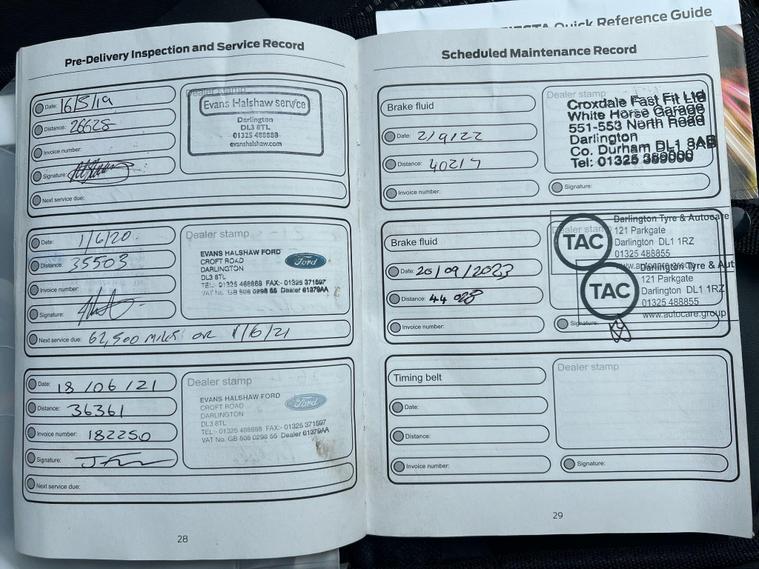 ESTA Quick Reference Guide
Pre-Delivery Inspection and Service Record
Date: 16/5/19
Distance: 26625
Invoice number:
Signature:
Next service due:
Dealer stamp
Evans Halshaw service
Darlington
DL3 8TL
01325 488888
evanshalshaw.com
Date: 1/6/20.
Distance: 35503
Invoice number:
Signature:
Next service due: 62,500 MILES OR 1/6/21
Dealer stamp
EVANS HALSHAW FORD
CROFT ROAD
DARLINGTON
DL3 8TL
TEL:- 01325 488888 FAX:- 01325 371597
VAT No. GB 506 0298 55 Dealer 61379AA
Ford
Date: 18/06/21
Distance: 36361
Invoice number: 182250
Signature:
Next service due:
Dealer stamp
EVANS HALSHAW FORD
CROFT ROAD
DARLINGTON
DL3 8TL
TEL:- 01325 488888 FAX:- 01325 371597
VAT No. GB 506 0298 55 Dealer 61379AA
Ford
28
Scheduled Maintenance Record
Brake fluid
Date: 2/9/22
Distance: 40217
Invoice number:
Dealer stamp
Croxdale Fast Fit Ltd
White Horse Garage
551-553 North Road
Darlington
Co. Durham DL1 3AB
Tel: 01325 389000
Signature:
Brake fluid
Date: 20/09/2023
Distance: 44 028
Invoice number:
Dealer stamp
TAC
Darlington Tyre & Autocare
121 Parkgate
Darlington DL1 1RZ
01325 488855
TAC
Darlington Tyre & Aut
121 Parkgate
Darlington DL1 1RZ
01325 488855
www.autocare.group
Signature:
Timing belt
Date:
Distance:
Invoice number:
Dealer stamp
Signature:
29